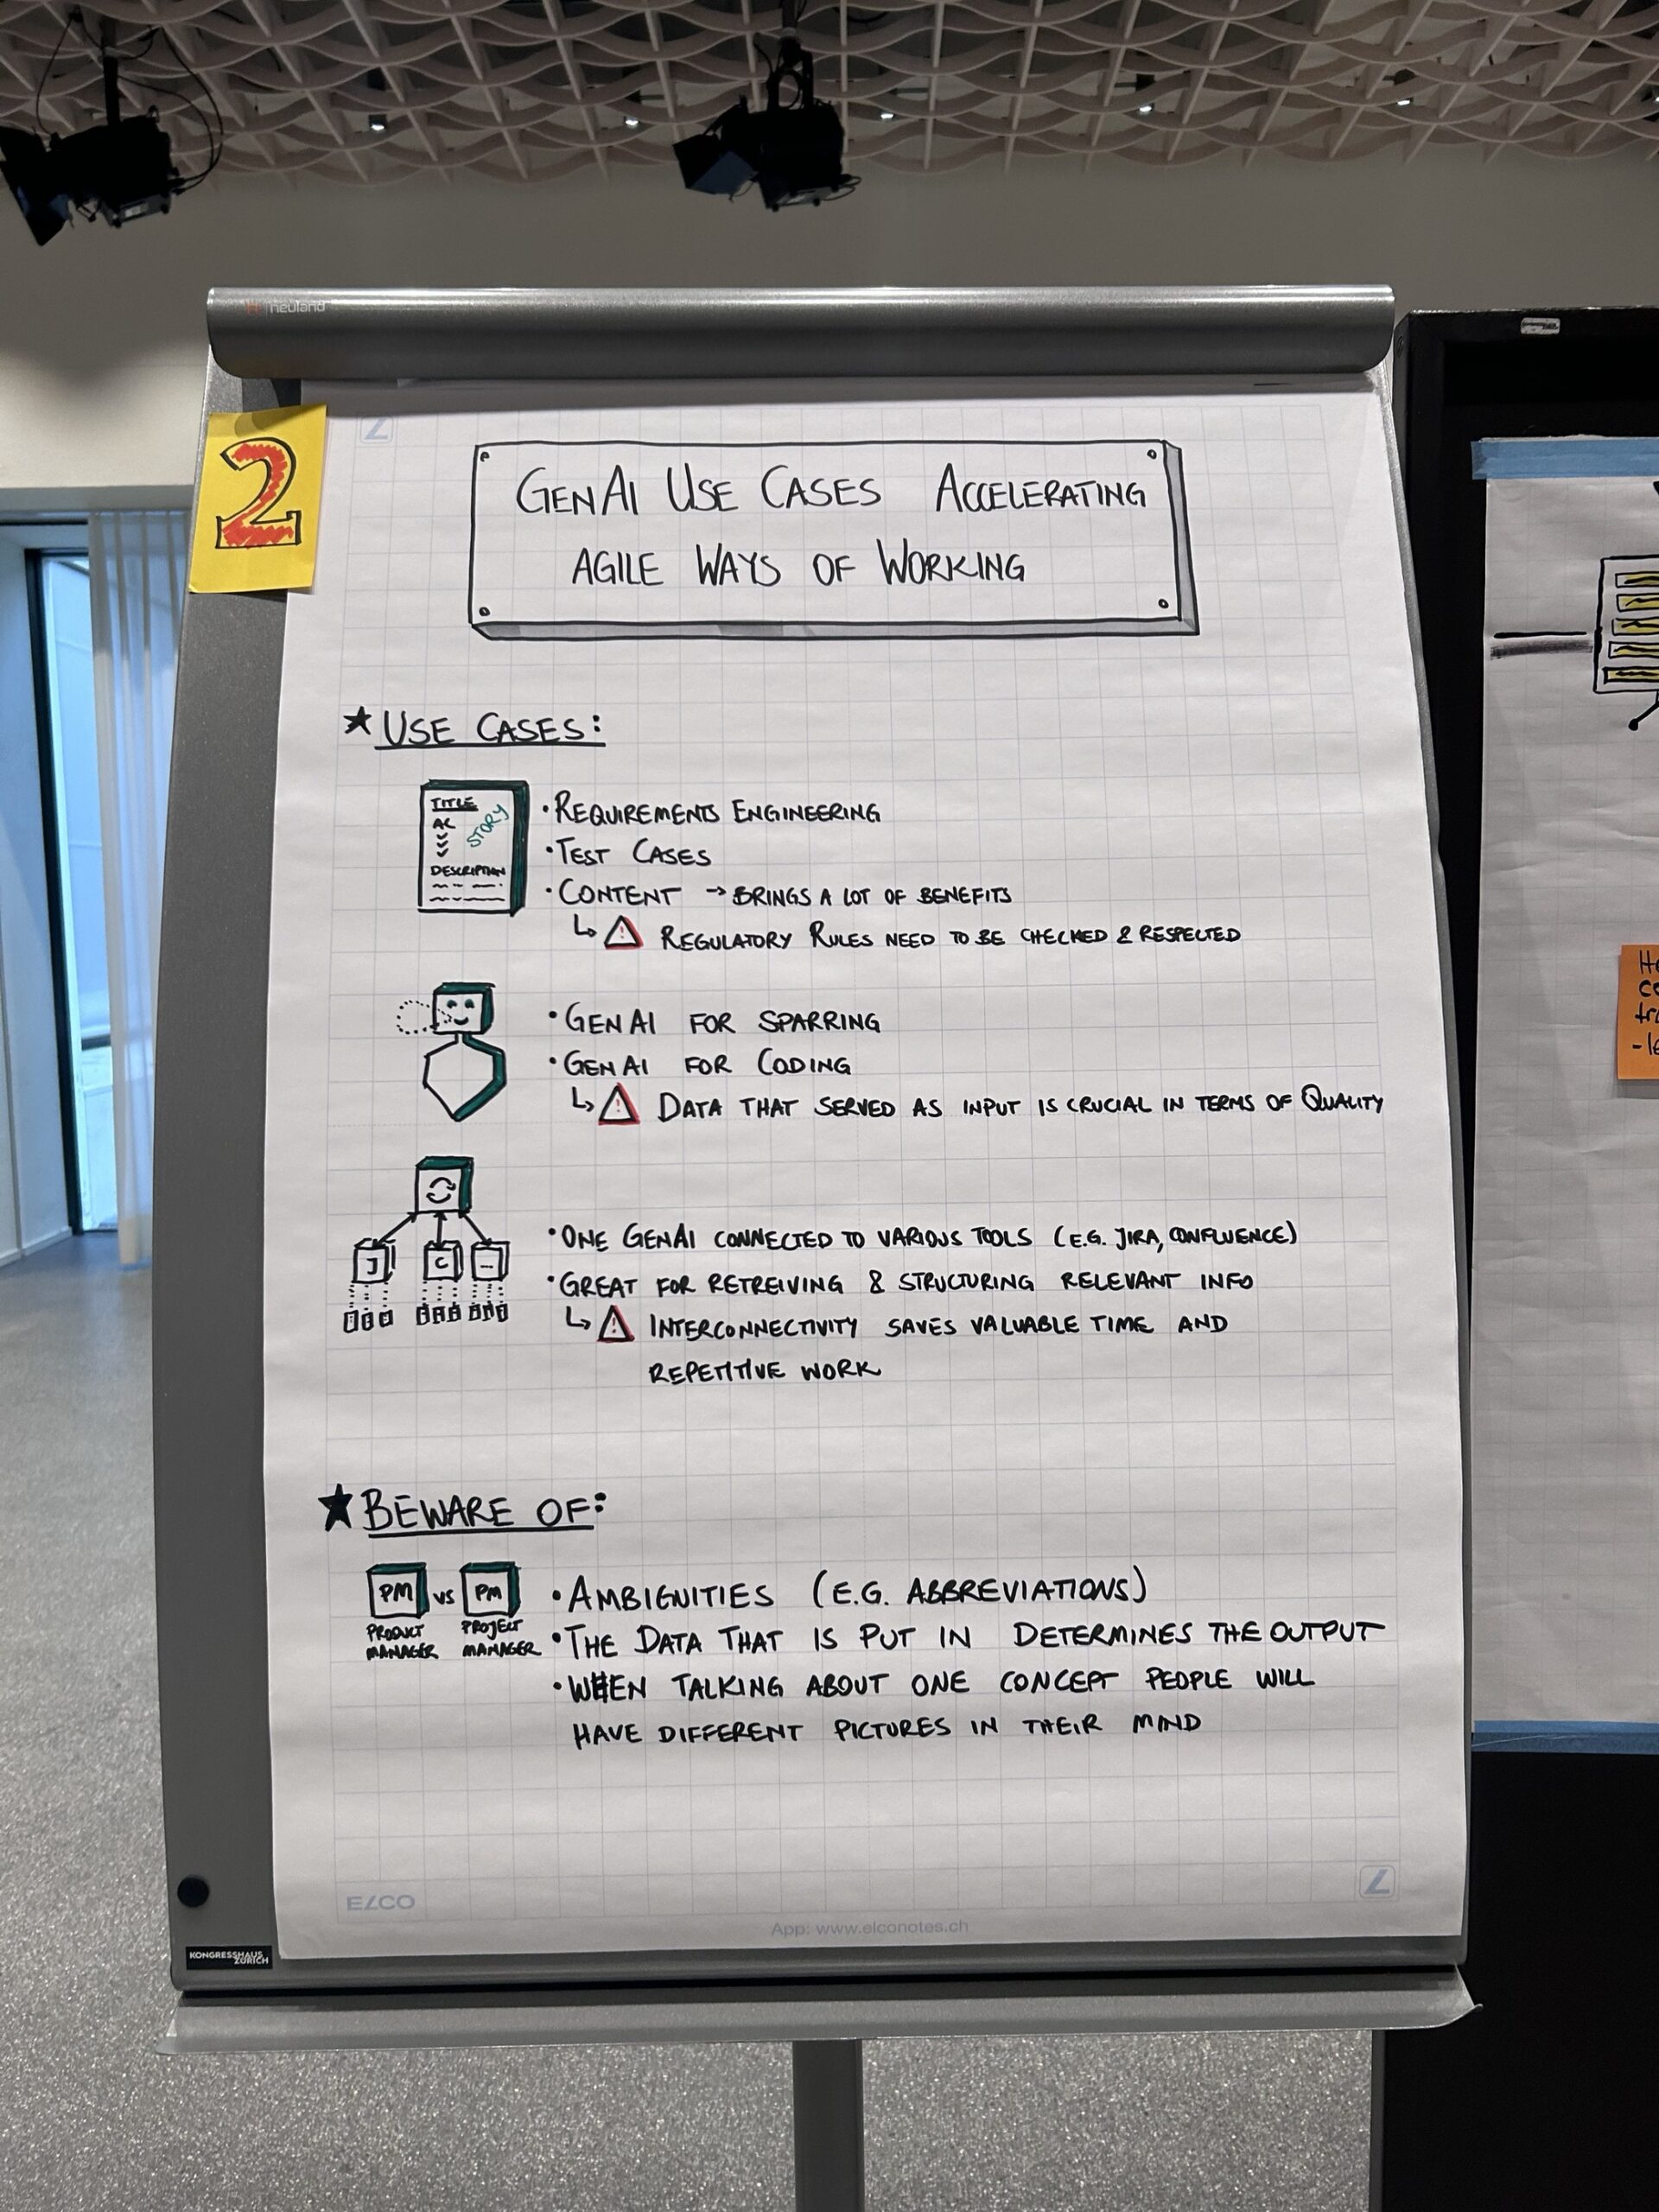 neuland
2
GENAI USE CASES ACCELERATING
AGILE WAYS OF WORKING
USE CASES:
TITLE
AC
STORY
DESCRIPTION
• REQUIREMENTS ENGINEERING
• TEST CASES
• CONTENT → BRINGS A LOT OF BENEFITS
↳ ⚠ REGULATORY RULES NEED TO BE CHECKED & RESPECTED
• GENAI FOR SPARRING
• GENAI FOR CODING
↳ ⚠ DATA THAT SERVED AS INPUT IS CRUCIAL IN TERMS OF QUALITY
J C –
• ONE GENAI CONNECTED TO VARIOUS TOOLS (E.G. JIRA, CONFLUENCE)
• GREAT FOR RETREIVING & STRUCTURING RELEVANT INFO
↳ ⚠ INTERCONNECTIVITY SAVES VALUABLE TIME AND
REPETITIVE WORK
BEWARE OF:
PM VS PM
PRODUCT MANAGER
PROJECT MANAGER
• AMBIGUITIES (E.G. ABBREVIATIONS)
• THE DATA THAT IS PUT IN DETERMINES THE OUTPUT
• WHEN TALKING ABOUT ONE CONCEPT PEOPLE WILL
HAVE DIFFERENT PICTURES IN THEIR MIND
ELCO
App: www.elconotes.ch
KONGRESSHAUS
ZÜRICH